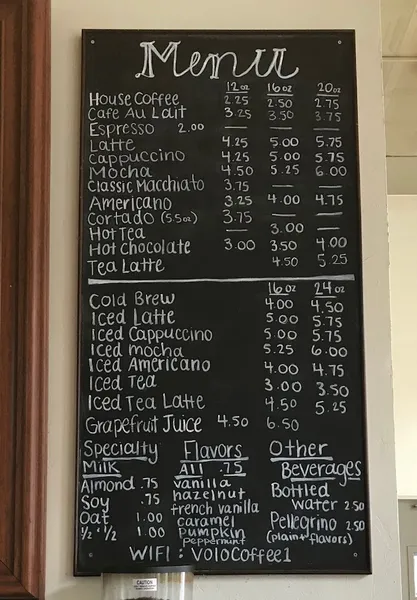 Menu
12oz 16oz 20oz
House Coffee 2.25 2.50 2.75
Cafe Au Lait 3.25 3.50 3.75
Espresso 2.00 — — —
Latte 4.25 5.00 5.75
Cappuccino 4.25 5.00 5.75
Mocha 4.50 5.25 6.00
Classic Macchiato 3.75 — —
Americano 3.25 4.00 4.75
Cortado (5.5oz) 3.75 — —
Hot Tea — 3.00 —
Hot Chocolate 3.00 3.50 4.00
Tea Latte 4.50 5.25
16oz 24oz
Cold Brew 4.00 4.50
Iced Latte 5.00 5.75
Iced Cappuccino 5.00 5.75
Iced Mocha 5.25 6.00
Iced Americano 4.00 4.75
Iced Tea 3.00 3.50
Iced Tea Latte 4.50 5.25
Grapefruit Juice 4.50 6.50
Specialty Milk
Almond .75
Soy .75
Oat 1.00
½ • ½ 1.00
Flavors
All .75
vanilla
hazelnut
french vanilla
caramel
pumpkin
peppermint
Other Beverages
Bottled
Water 2.50
Pellegrino 2.50
(plain + flavors)
WIFI : VoloCoffee1
CAUTION